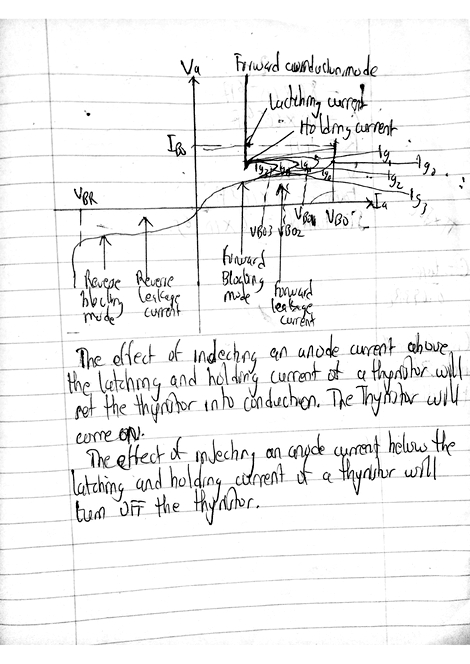 Va
Forward conduction mode
Latching current
Holding current
IBO
Ig1
Ig2
Ig3
Ia
VBR
VBO3
VBO2
VBO1
VBO
Reverse blocking mode
Reverse leakage current
Forward Blocking mode
Forward leakage current
The effect of indeching an anode current above
the latching and holding current of a thyristor will
set the thyristor into conduction. The Thyristor will
come on.
The effect of indeching an anode current below the
latching and holding current of a thyristor will
turn OFF the thyristor.